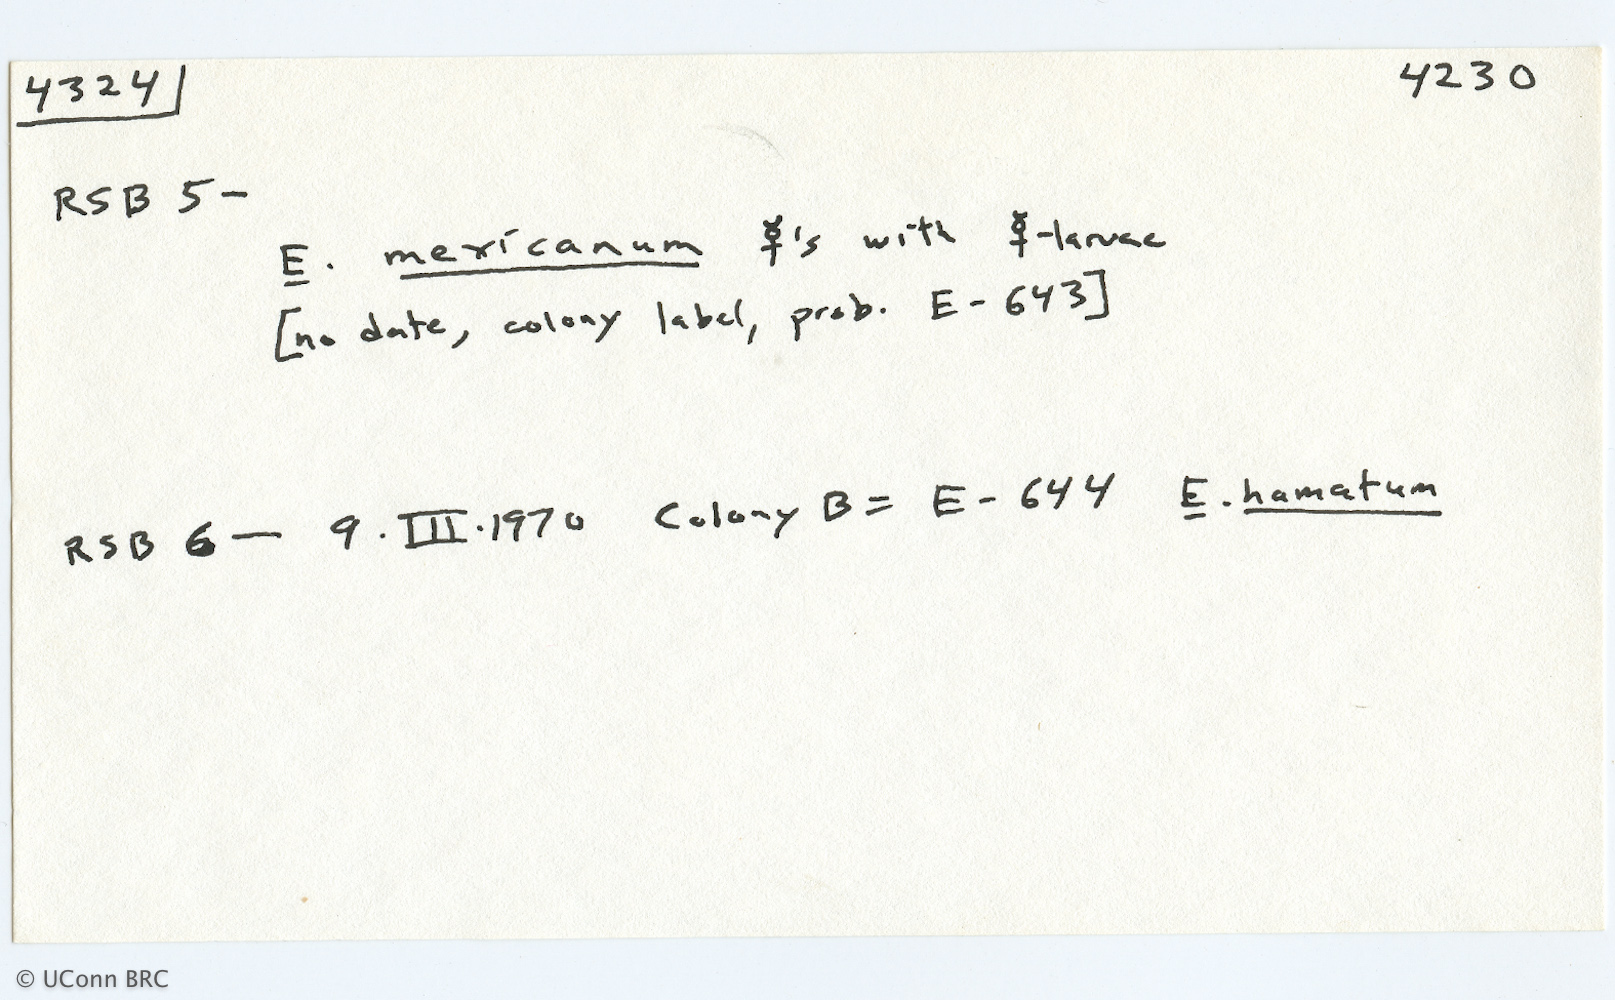 4324 4230
RSB 5-
E. mexicanum ☿'s with ☿-larvae
[no date, colony label, prob. E-643]
RSB 6 — 9.III.1970 Colony B = E-644 E. hamatum
© UConn BRC